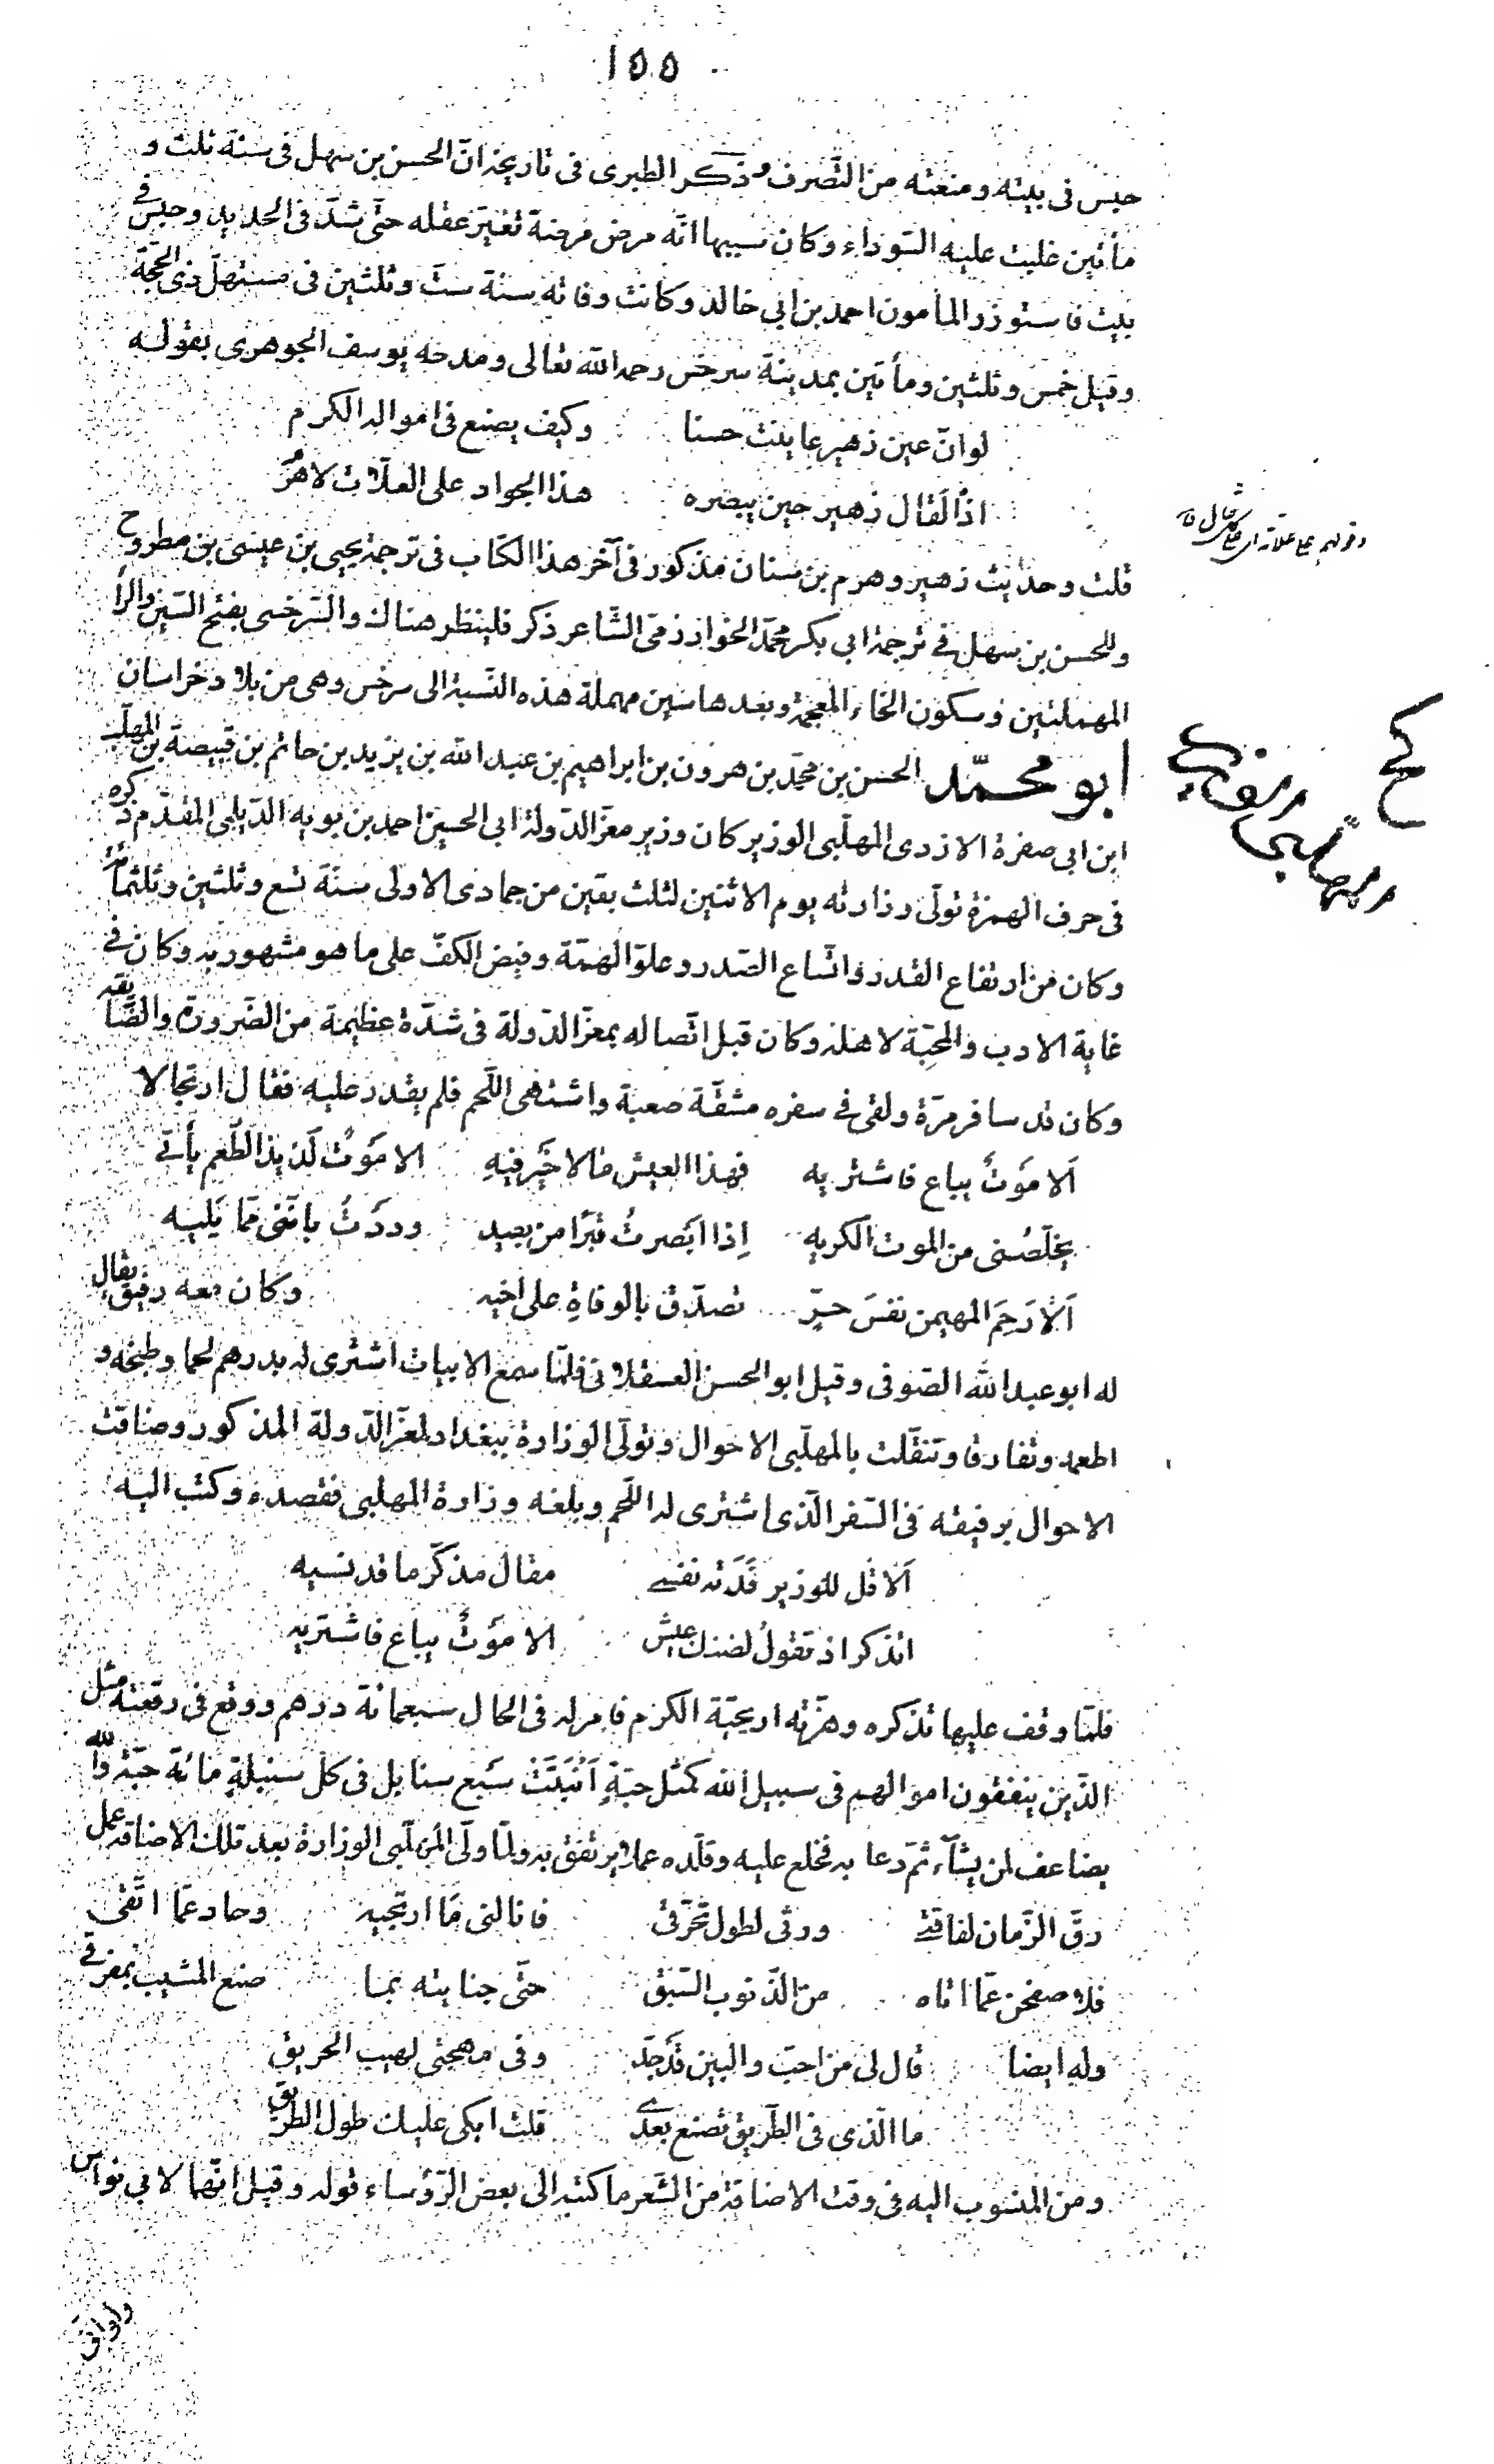 ١٥٥
حبس فى بيته ومنعته من التّصرف وذكر الطبرى فى تاريخه انّ الحسن بن سهل فى سنة ثلث و
مأتين غلبت عليه السّوداء وكان سببها انّه مرض مرضة تغيّر عقله حتّى شدّ فى الحديد وحبس فى
بيت فاستوزر المأمون احمد بن ابى خالد وكانت وفاته سنة ستّ وثلثين فى مستهلّ ذى الحجّة
وقيل خمس وثلثين ومأتين بمدينة سرخس رحمه الله تعالى ومدحه يوسف الجوهرى بقوله
لو انّ عين زهير عاينت حسنا وكيف يصنع فى امواله الكرم
اذًا لَقال زهير حين يبصره هذا الجواد على العلّات لا هرم
قلت وحديث زهير وهرم بن سنان مذكور فى آخر هذا الكتاب فى ترجمة يحيى بن عيسى بن مطروح
وللحسن بن سهل فى ترجمة ابى بكر محمّد الخوارزمى الشّاعر ذكر فلينظر هناك والسّرخسى بفتح السّين والرا
المهملتين وسكون الخاء المعجمة وبعدها سين مهملة هذه النّسبة الى سرخس وهى من بلاد خراسان
أبو محمّد الحسن بن محمّد بن هرون بن ابراهيم بن عبد الله بن يزيد بن حاتم بن قبيصة بن المهلّب
ابن ابى صفرة الازدى المهلّبى الوزير كان وزير معزّ الدّولة ابى الحسين احمد بن بويه الدّيلمى المقدّم ذكره
فى حرف الهمزة تولّى وزارته يوم الاثنين لثلث بقين من جمادى الاولى سنة تسع وثلثين وثلثمائة
وكان من ارتفاع القدر واتّساع الصّدر وعلوّ الهمّة وفيض الكفّ على ما هو مشهور به وكان فى
غاية الادب والمحبّة لاهله وكان قبل اتّصاله بمعزّ الدّولة فى شدّة عظيمة من الضّرورة والضّايقه
وكان قد سافر مرّة ولقى فى سفره مشقّة صعبة واشتهى اللّحم فلم يقدر عليه فقال ارتجالا
اَلا مَوتٌ يباع فاشتريه فهذا العيش ما لا خَير فيهِ الا مَوتٌ لَذيذ الطّعم يأتى
يخلّصُنى من الموت الكريه اِذا اَبَصرتُ قبرًا من بعيد وددَتُ بانّنى ممّا يَليه
اَلا رَحِمَ المهيمن نفسَ حرٍّ تصدّق بالوفاةِ على اخيه وكان معه رفيق يقال
له ابو عبد الله الصّوفى وقيل ابو الحسن العسقلانى فلمّا سمع الابيات اشترى له بدرهم لحما وطبخه و
اطعمه وتفارقا وتنقّلت بالمهلّبى الاحوال وتولّى الوزارة ببغداد لمعزّ الدّولة المذكور وضاقت
الاحوال برفيقه فى السّفر الّذى اشترى له اللّحم وبلغه وزارة المهلبى فقصده وكتب اليه
اَلا قل للوزير فَدَته نفسى مقال مذكّر ما قد نسيه
اتذكر اذ تقولُ لضنك عيش الا مَوتٌ يباع فاشتريه
فلمّا وقف عليها تذكره وهزّته اريحيّة الكرم فامر له فى الحال سبعمائة درهم ووقع فى رقعته مثل
الّذين ينفقون اموالهم فى سبيل الله كمثل حبّةٍ اَنْبَتَتْ سَبع سنابل فى كل سنبلةٍ مائة حبّة والله
يضاعف لمن يشآء ثمّ دعا به فخلع عليه وقلّده عملا يرتفق به ولمّا ولّى المهلّبى الوزارة بعد تلك الاضاقة عمل
رقّ الزّمان لفاقتى ورثى لطول تحرّقى فانالنى مَا ارتجيه وحاد عمّا اتّقى
فلا صفحن عمّا اتاه من الذّنوب السّبق حتّى جنايته بما صنع المشيب بمفرقى
وله ايضا قال لى من احبّ والبين قد جدّ وفى مهجتى لهيب الحريق
ما الّذى فى الطّريق تصنع بعدى قلت ابكى عليك طول الطّريق
ومن المنسوب اليه فى وقت الاضاقة من الشّعر ما كتبه الى بعض الرّؤساء قوله وقيل انّهما لابى نواس